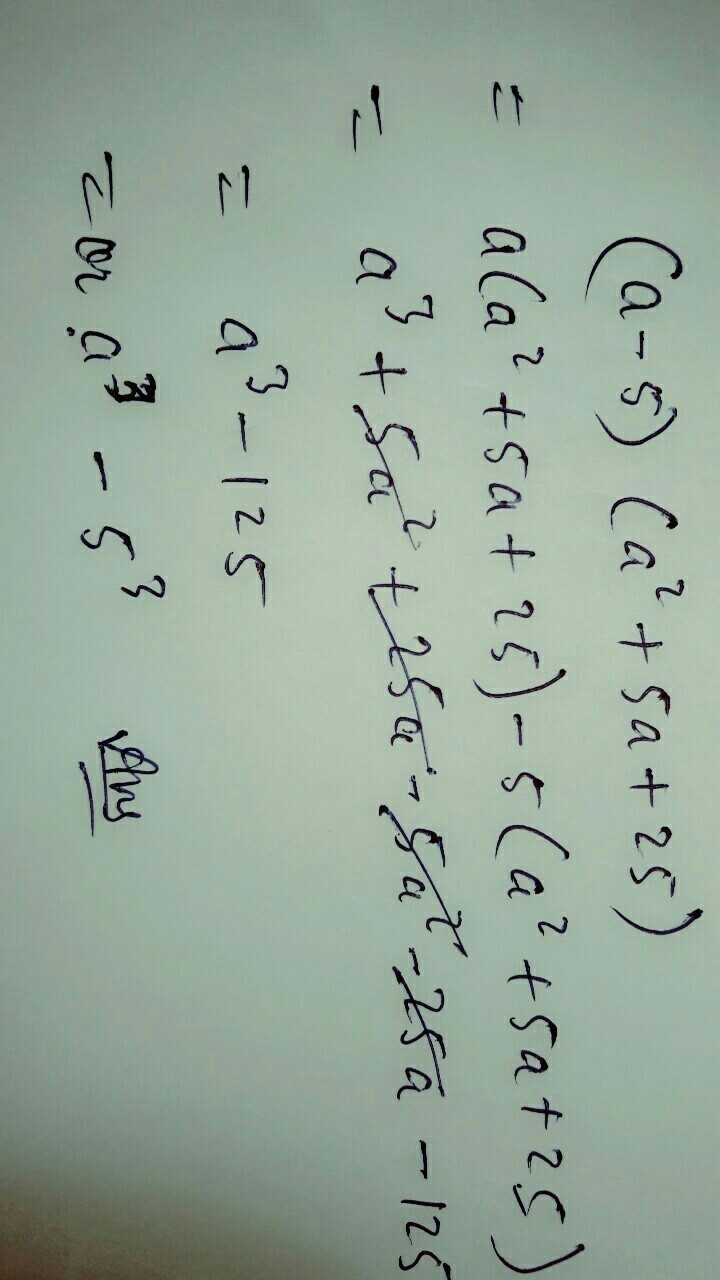 (a-5) (a²+5a+25)
= a(a²+5a+25)-5(a²+5a+25)
= a³+5a²+25a-5a²-25a-125
= a³-125
= or a³-5³ Ans